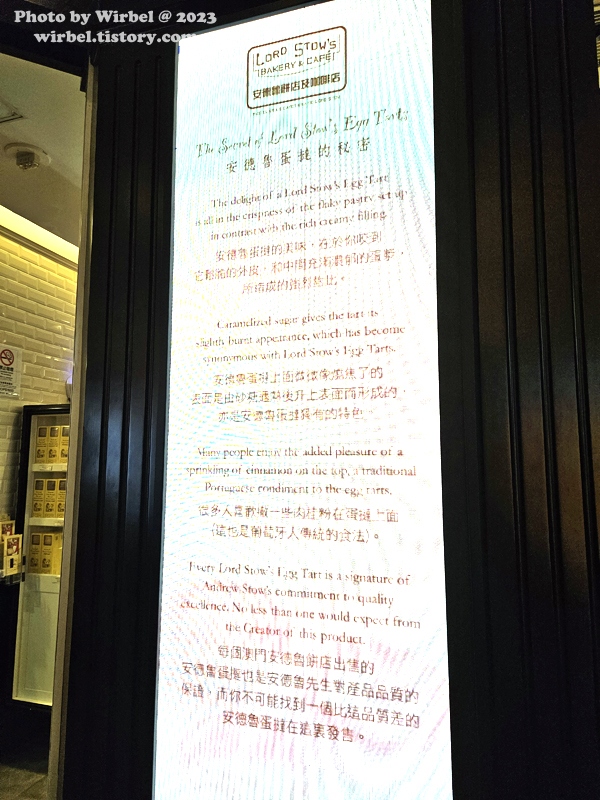 Photo by Wirbel @ 2023
wirbel.tistory.com
LORD STOW'S
BAKERY & CAFÉ
安德魯餅店及咖啡店
The Secret of Lord Stow's Egg Tarts
安德魯蛋撻的秘密
The delight of a Lord Stow's Egg Tart
is all in the crispness of the flaky pastry set up
in contrast with the rich creamy filling.
安德魯蛋撻的美味，在於你咬到
它鬆脆的外皮，和中間充滿濃郁的蛋漿，
所構成的強烈對比。
Caramelized sugar gives the tart its
slightly burnt appearance, which has become
synonymous with Lord Stow's Egg Tarts.
安德魯蛋撻上面微微像燒焦了的
表面是由砂糖遇熱後升上表面而形成的，
亦是安德魯蛋撻獨有的特色。
Many people enjoy the added pleasure of a
sprinkling of cinnamon on the top, a traditional
Portuguese condiment to the egg tarts.
很多人喜歡撒一些肉桂粉在蛋撻上面
(這也是葡萄牙人傳統的食法)。
Every Lord Stow's Egg Tart is a signature of
Andrew Stow's commitment to quality
excellence. No less than one would expect from
the Creator of this product.
每個澳門安德魯餅店出售的
安德魯蛋撻也是安德魯先生對產品品質的
保證，而你不可能找到一個比這品質差的
安德魯蛋撻在這裏發售。